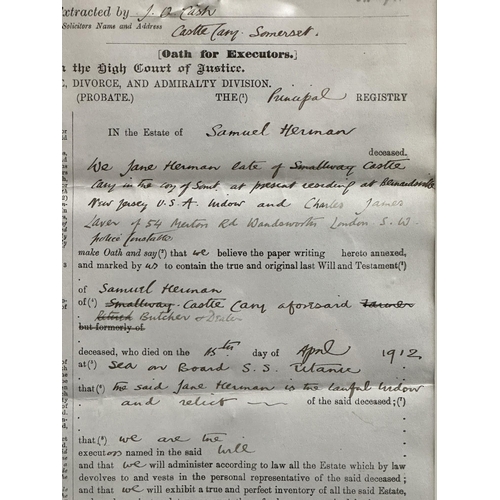 Extracted by J. O. Cash
Solicitors Name and Address Castle Cary, Somerset.
[Oath for Executors.]
n the High Court of Justice.
E, DIVORCE, AND ADMIRALTY DIVISION.
(PROBATE.) THE(¹) Principal REGISTRY
IN the Estate of Samuel Herman
deceased.
We Jane Herman late of Smallway Castle
Cary in the coy of Somt. at present residing at Bernardsville
New Jersey U.S.A. Widow and Charles James
Laver of 54 Merton Rd Wandsworth London S.W.
police constable
make Oath and say(²) that we believe the paper writing hereto annexed,
and marked by us to contain the true and original last Will and Testament(³)
of Samuel Herman
of(⁴) Smallway Castle Cary aforesaid Farmer
Butcher & Dealer
but formerly of
deceased, who died on the 15th day of April 1912
at(⁵) sea on Board S.S. Titanic
that(⁶) the said Jane Herman is the lawful widow
and relict of the said deceased;(⁷)
that(⁸) we are the
executors named in the said will
and that we will administer according to law all the Estate which by law
devolves to and vests in the personal representative of the said deceased;
and that we will exhibit a true and perfect inventory of all the said Estate,